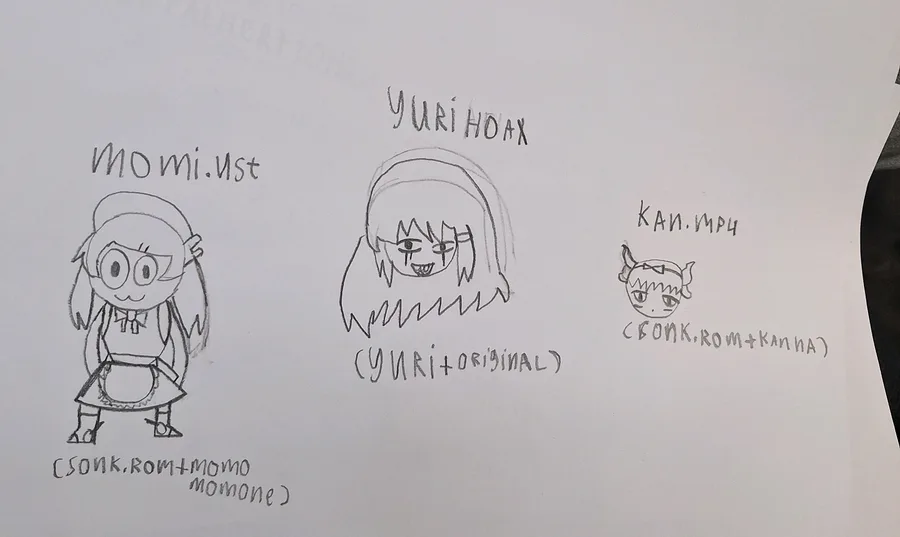 momi.ust
(SONK.ROM+MOMO
MOMONe)
YURi HOAX
(YURi+ORiGiNAL)
KAN.MP4
(SONK.ROM+KANNA)